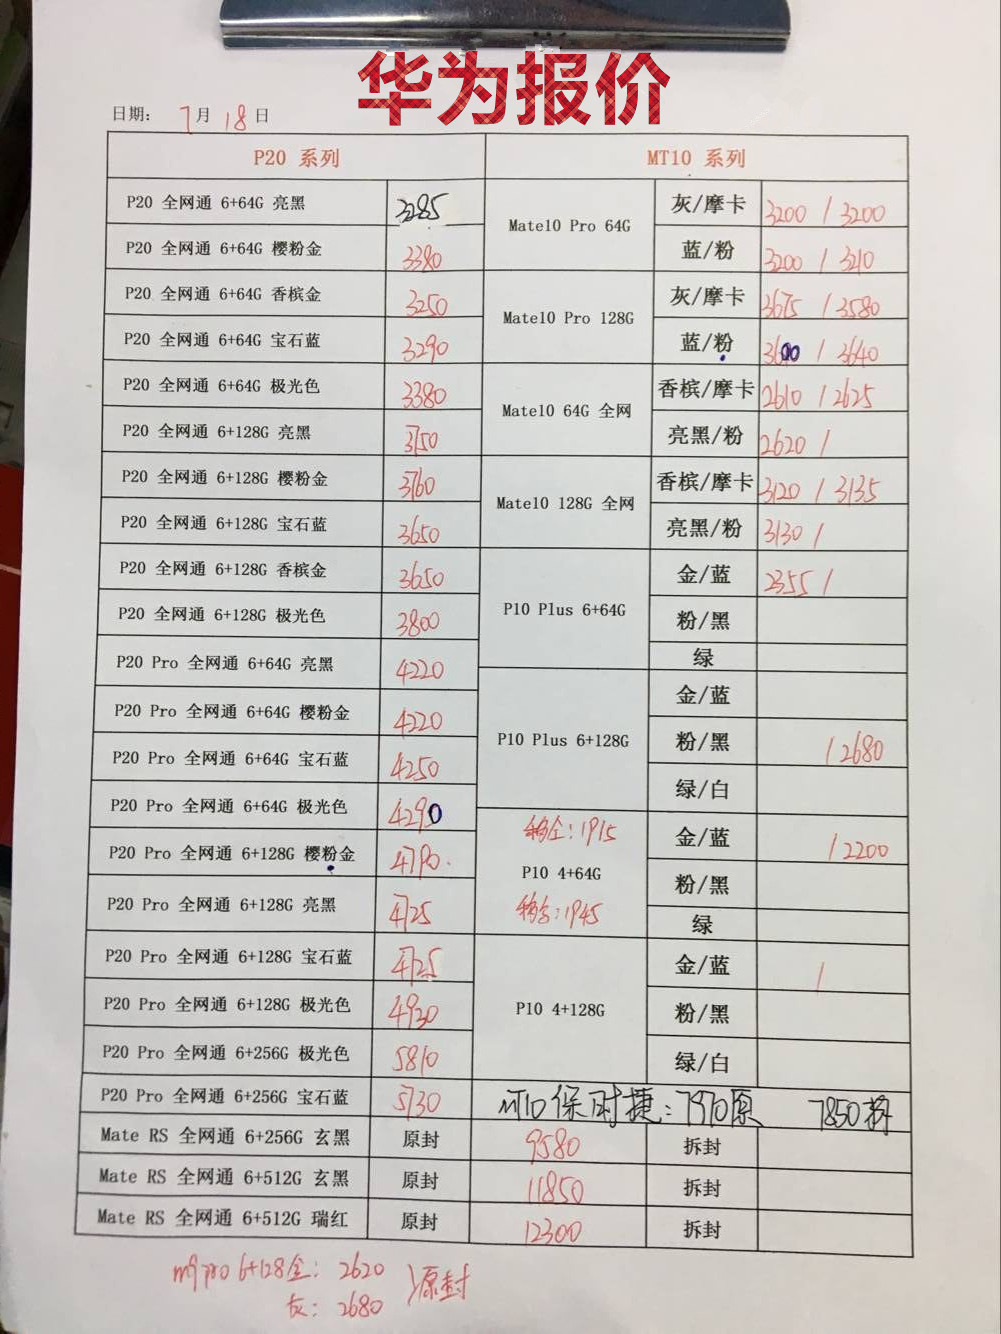 华为报价
日期: 7月18日
P20 系列
P20 全网通 6+64G 亮黑 3285
P20 全网通 6+64G 樱粉金 3380
P20 全网通 6+64G 香槟金 3250
P20 全网通 6+64G 宝石蓝 3290
P20 全网通 6+64G 极光色 3380
P20 全网通 6+128G 亮黑 3750
P20 全网通 6+128G 樱粉金 3760
P20 全网通 6+128G 宝石蓝 3650
P20 全网通 6+128G 香槟金 3650
P20 全网通 6+128G 极光色 3800
P20 Pro 全网通 6+64G 亮黑 4220
P20 Pro 全网通 6+64G 樱粉金 4220
P20 Pro 全网通 6+64G 宝石蓝 4250
P20 Pro 全网通 6+64G 极光色 4290
P20 Pro 全网通 6+128G 樱粉金 4790
P20 Pro 全网通 6+128G 亮黑 4725
P20 Pro 全网通 6+128G 宝石蓝 4725
P20 Pro 全网通 6+128G 极光色 4930
P20 Pro 全网通 6+256G 极光色 5810
P20 Pro 全网通 6+256G 宝石蓝 5730
MT10 系列
Mate10 Pro 64G
灰/摩卡 3200 / 3200
蓝/粉 3200 / 3210
Mate10 Pro 128G
灰/摩卡 3675 / 3580
蓝/粉 3600 / 3640
Mate10 64G 全网
香槟/摩卡 2610 / 2625
亮黑/粉 2620 /
Mate10 128G 全网
香槟/摩卡 3120 / 3135
亮黑/粉 3130 /
P10 Plus 6+64G
金/蓝 2355 /
粉/黑
绿
P10 Plus 6+128G
金/蓝
粉/黑 / 2680
绿/白
1915
P10 4+64G
1945
金/蓝 / 2200
粉/黑
绿
P10 4+128G
金/蓝 /
粉/黑
绿/白
MT10保时捷: 7970原 7850拆
Mate RS 全网通 6+256G 玄黑 原封 9580 拆封
Mate RS 全网通 6+512G 玄黑 原封 11850 拆封
Mate RS 全网通 6+512G 瑞红 原封 12300 拆封
m9 pro 6+128金: 2620
灰: 2680
原封